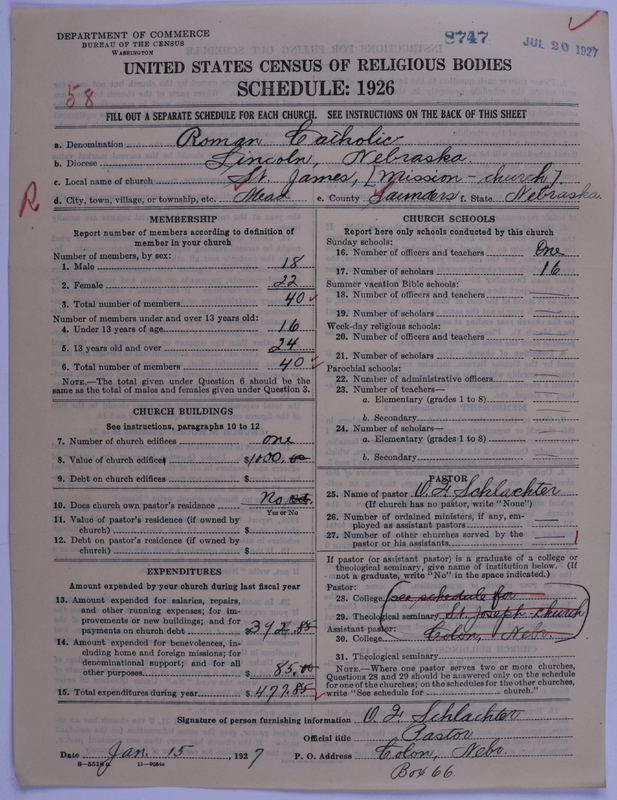 DEPARTMENT OF COMMERCE
BUREAU OF THE CENSUS
WASHINGTON
9747
JUL 20 1927
UNITED STATES CENSUS OF RELIGIOUS BODIES
SCHEDULE: 1926
58
FILL OUT A SEPARATE SCHEDULE FOR EACH CHURCH. SEE INSTRUCTIONS ON THE BACK OF THIS SHEET
a. Denomination Roman Catholic
b. Diocese Lincoln, Nebraska.
c. Local name of church St. James, [Mission-church].
R
d. City, town, village, or township, etc. Mead e. County Saunders f. State Nebraska.
MEMBERSHIP
Report number of members according to definition of
member in your church
Number of members, by sex:
1. Male 18
2. Female 22
3. Total number of members 40
Number of members under and over 13 years old:
4. Under 13 years of age 16
5. 13 years old and over 24
6. Total number of members 40
NOTE.—The total given under Question 6 should be the
same as the total of males and females given under Question 3.
CHURCH BUILDINGS
See instructions, paragraphs 10 to 12
7. Number of church edifices one
8. Value of church edifices $1000.00
9. Debt on church edifices $
10. Does church own pastor's residence No
Yes or No
11. Value of pastor's residence (if owned by
church) $
12. Debt on pastor's residence (if owned by
church) $
EXPENDITURES
Amount expended by your church during last fiscal year
13. Amount expended for salaries, repairs,
and other running expenses; for im-
provements or new buildings; and for
payments on church debt 392.85
14. Amount expended for benevolences, in-
cluding home and foreign missions; for
denominational support; and for all
other purposes $ 85.00
15. Total expenditures during year $ 477.85
CHURCH SCHOOLS
Report here only schools conducted by this church
Sunday schools:
16. Number of officers and teachers One
17. Number of scholars 16
Summer vacation Bible schools:
18. Number of officers and teachers
19. Number of scholars
Week-day religious schools:
20. Number of officers and teachers
21. Number of scholars
Parochial schools:
22. Number of administrative officers
23. Number of teachers—
a. Elementary (grades 1 to 8)
b. Secondary
24. Number of scholars—
a. Elementary (grades 1 to 8)
b. Secondary
PASTOR
25. Name of pastor O. F. Schlachter
(If church has no pastor, write "None")
26. Number of ordained ministers, if any, em-
ployed as assistant pastors
27. Number of other churches served by the
pastor or his assistants 1
If pastor (or assistant pastor) is a graduate of a college or
theological seminary, give name of institution below. (If
not a graduate, write "No" in the space indicated.)
Pastor:
28. College see schedule for
29. Theological seminary St. Joseph church
Assistant pastor:
30. College Colon, Nebr.
31. Theological seminary
NOTE.—Where one pastor serves two or more churches,
Questions 28 and 29 should be answered only on the schedule
for one of the churches; on the schedules for the other churches,
write "See schedule for church."
Signature of person furnishing information O. F. Schlachter
Official title Pastor
Date Jan. 15, 1927 P. O. Address Colon, Nebr.
Box 66.